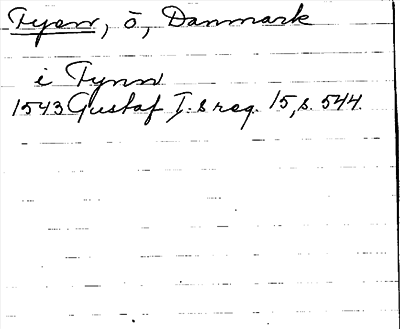 Fyen, ö, Danmark
i Fynn
1543 Gustaf I:s reg. 15, s. 544.